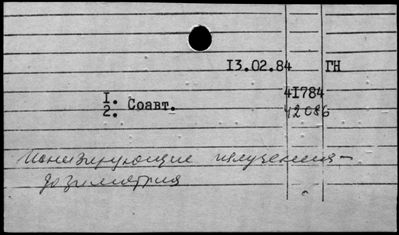 13.02.84 ГН
41784
1. Соавт.
2. 42086
Ионизирующие излучения-
дозиметрия